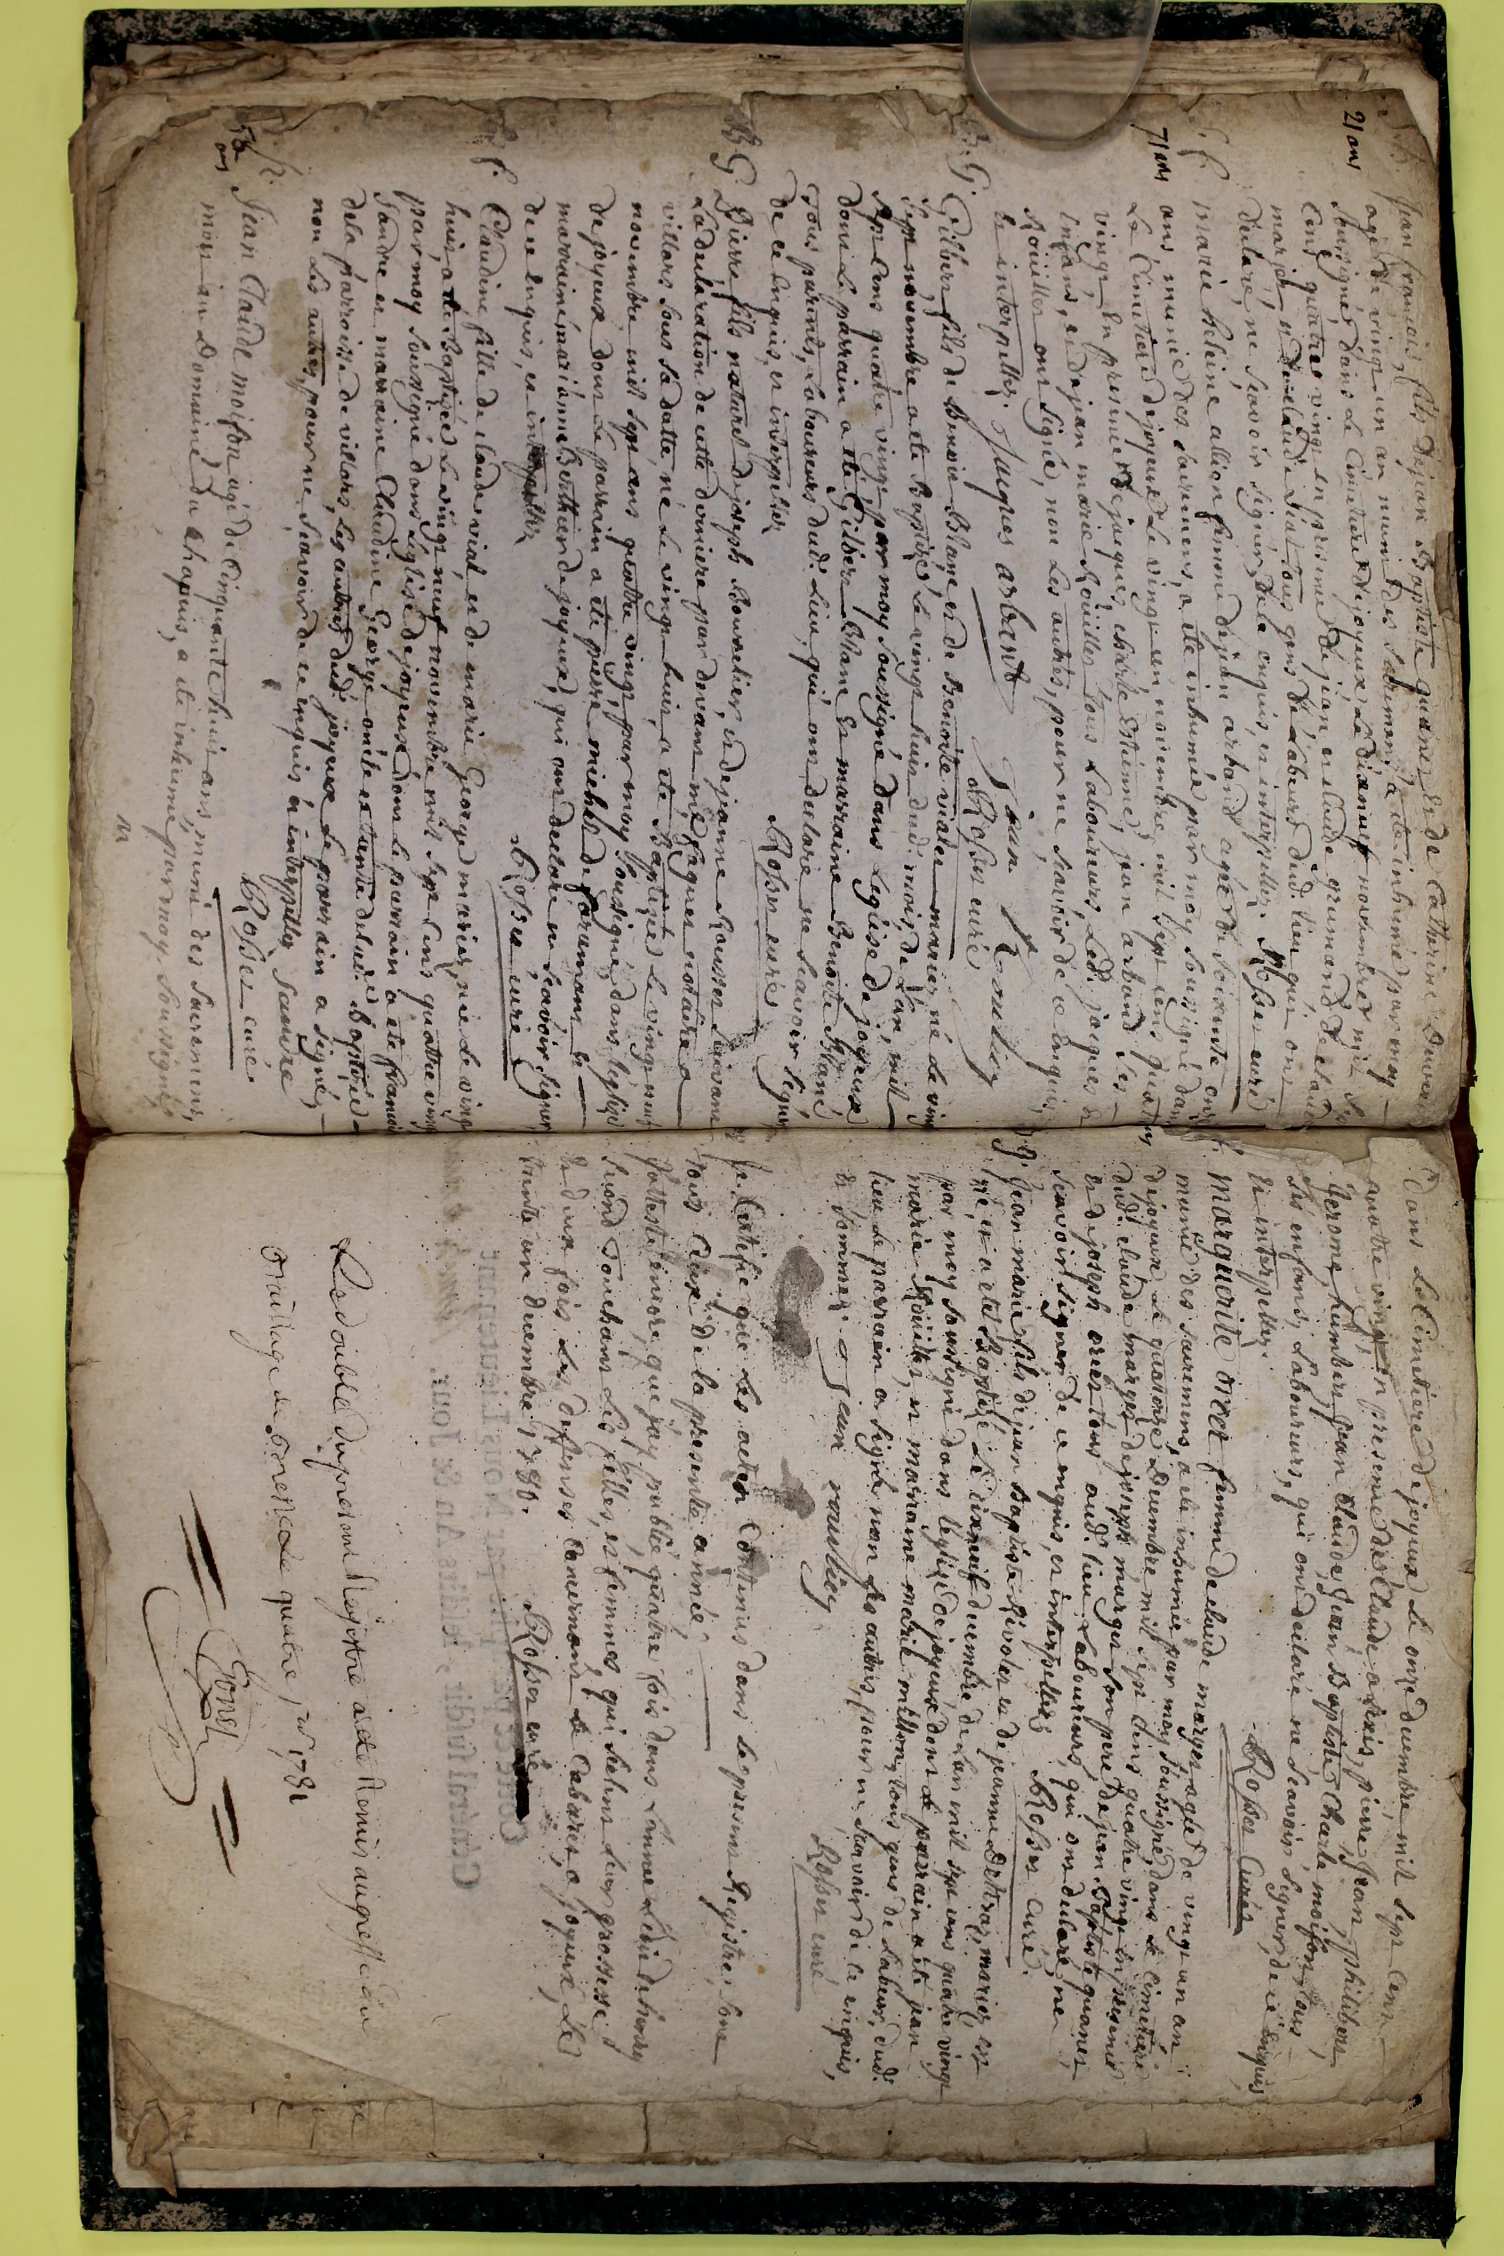 S. Jean francois fils de jean Baptiste quanet et de Catherine
21 ans
agé de vingt un an muni des sacremens a été inhumé par moy
soussigné dans le Cimetiere de joyeux le dixneuf novembre mil
cent quatre vingt en presence de jean et claude
tous gens de Labeur dudt. lieu qui ont
declaré ne scavoir signer de ce enquis et interpellez. Rosset curé
S. f. marie helene allion femme de jean arband agée de soixante onze
71 ans
ans munie des sacremens a été inhumée par moy soussigné dans
Le Cimetiere de joyeux Le vingt un novembre mil sept cens quatre
vingt en presence de jaques, charle, Estienne, jean arband ses
enfans, et de jean marie Rouiller tous Laboureurs, Ledt. jacques et
Rouiller ont signé, non Les autres, pour ne scavoir de ce enquis
et interpellez. Jacques arband Jean Roullier
Rosset curé
B. G. Gilbert fils de Benoit Blanc et de Benoite violet mariez né le vingt
sept novembre a été Baptisé Le vingt huit dudt. mois de L'an mil
sept cens quatre vingt par moy soussigné dans Leglise de joyeux
dont Le parrain a été Gilbert Blanc et marraine Benoite Blanc
tous parents, Laboureurs dudt. Lieu, qui ont declaré ne scavoir signer
de ce enquis, et interpellez
Rosset curé
B. G. Pierre fils naturel de joseph Bourcelier, et de jeanne Rousset suivant
La declaration de cette derniere par devant me. faguet notaire a
villars sous sa datte, né Le vingt huit, a été Baptisé Le vingt neuf
novembre mil sept cens quatre vingt par moy soussigné dans leglise
de joyeux dont Le parrain a été pierre michel de faramans et
marraine marianne Berthier de joyeux, qui ont declaré ne scavoir signer
de ce enquis, et interpellez
Rosset curé
B. f. Claudine fille de claude vial, et de marie George mariez, née Le vingt
huit, a été Baptisée Le vingt neuf novembre mil sept Cens quatre vingt
par moy soussigné dans L'eglise de joyeux dont Le parrain a été francois
Jandre et marraine Claudine George oncle et tante de ladte. baptisée
de la parroisse de villars, Les autres dudt. joyeux Le parrain a signé
non Les autres, pour ne scavoir de ce enquis et interpellez
Rosset curé.
S. Jean Claude moisson agé de Cinquante huit ans, muni des sacremens
58 ans
mort au Domaine du chapuis, a été inhumé par moy soussigné
dans Le Cimetiere de joyeux Le onze decembre, mil sept cens
quatre vingt en presence de Claude alexis, pierre, jean, philibert
Gerome, humbert, jean Claude, jean Baptiste, Charle moisson, tous
ses enfans, Laboureurs, qui ont declaré ne scavoir signer, de ce enquis
et interpellez.
Rosset Curé
S. f. marguerite orset femme de claude marget agée de vingt un an
munie des sacremens, a été inhumée par moy soussigné, dans le Cimetiere
de joyeux Le quatorze Decembre, mil sept cens quatre vingt en presence
dudt. claude marget, de joseph marget son pere, de jean Baptiste quanet
et de joseph orset tous audt. lieu Laboureurs, qui ont declaré, ne
scavoir signer de ce enquis, et interpellez Rosset curé.
B. G. Jean marie fils de jean Baptiste Rivolet et de jeanne mariez est
né et a été Baptisé Le dixneuf decembre de Lan mil sept cens quatre vingt
par moy soussigné dans L'eglise de joyeux dont Le parrain a été jean
marie Rouiller, et marraine marie millon, tous gens de Labeur dudt.
lieu Le parrain a signé non Les autres, pour ne scavoir de ce enquis,
et sommez. Jean roullier
Rosset curé
Je Certifie que Les actes Contenus dans Le present Registre, sont
tous Ceux de la presente année,
J'atteste encore que j'ay publié quatre fois dans L'année L'edit de henry
second touchant Les filles, et femmes, qui Celent Leur grossesse,
et deux fois Les deffenses Concernant Le Cabaret, a joyeux, Le
trente un decembre 1780.
Rosset curé
Le double du present Registre a été Remis au greffe du
Bailliage de Bresse Le quatre, 1781